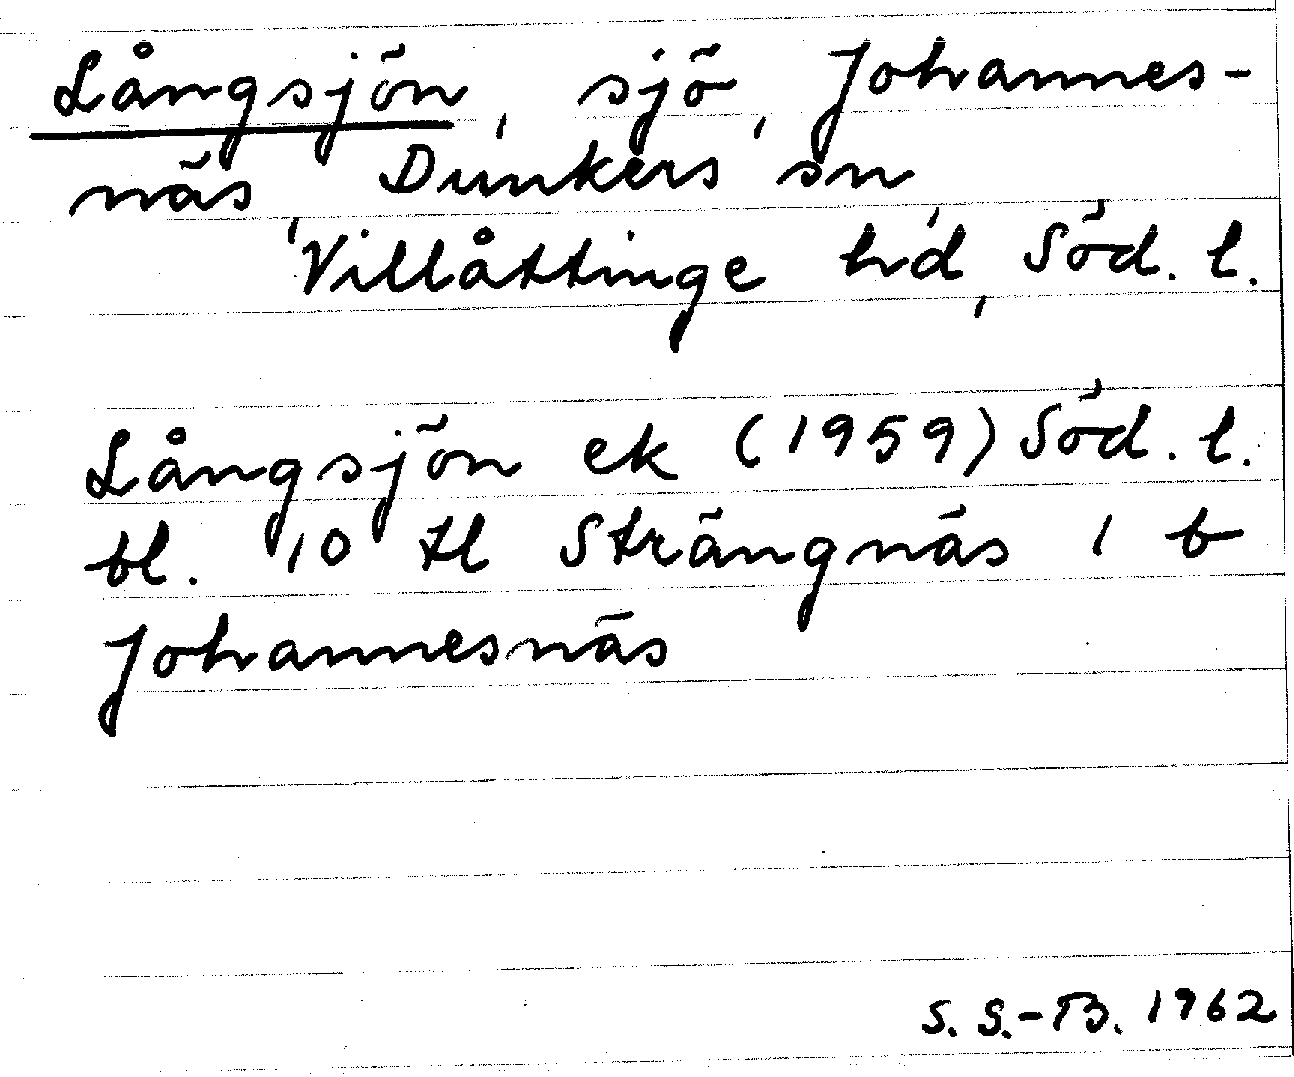 Långsjön, sjö, Johannes-
näs, Dunkers sn,
Villåttinge hd, Söd. l.
Långsjön ek (1959) Söd. l.
bl. 10 tl Strängnäs 1 b
Johannesnäs
S. S.-B. 1962